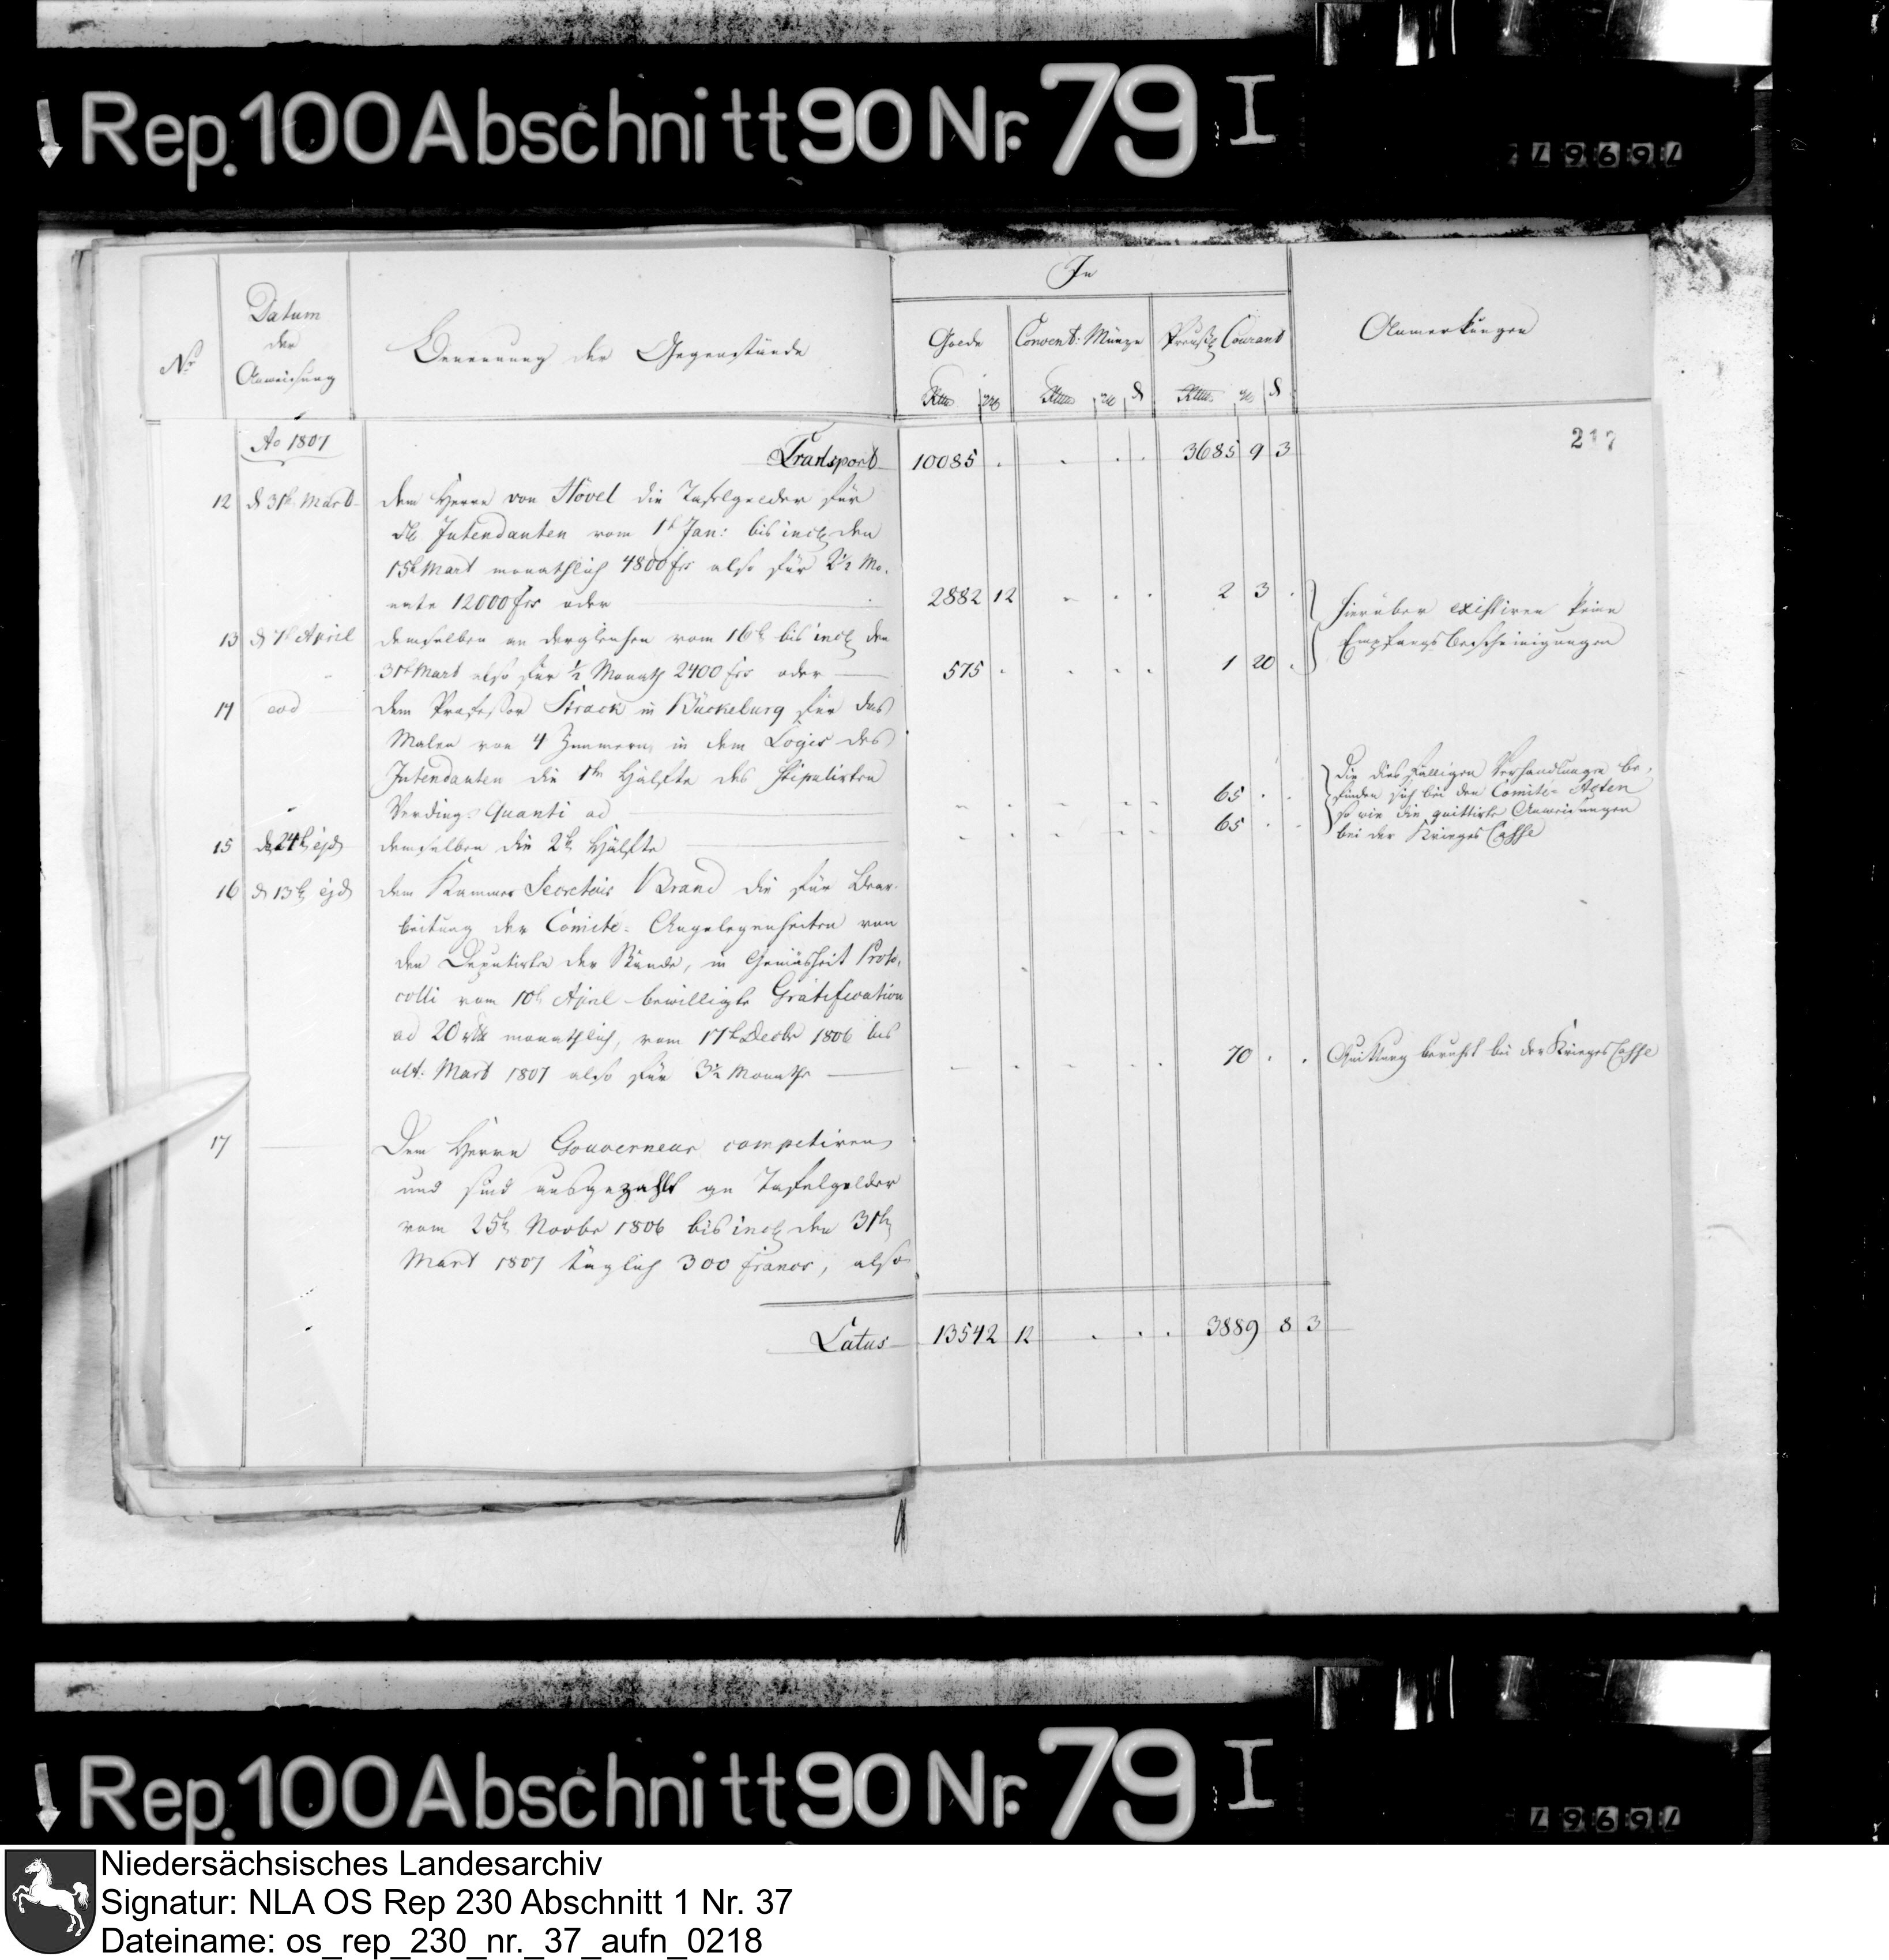 Rep. 100 Abschnitt 90 Nr. 79 I
76967
In
No
Datum
der
Anweisung
Benennung der Gegenstände
Golde
Convent: Münze
Preuß Courant
Anmerkungen
Ao 1807
Transport 10085 . . . . 3685 9 3
217
12 d 31t Mart dem Herrn von Hövel die Tafelgelder für
Intendanten vom 1t Jan: bis incl den
15t Mart monathlich 4800 frs also für 2½ Mo-
nate 12000 frs oder 2882 12 . . . 2 3 .
Hierüber existiren keine
Empfangs Bescheinigungen
13 d 7t April demselben an dergleichen vom 16t bis incl den
31t Mart also für ½ Monath 2400 frs oder 575 . . . . 1 20 .
14 eod dem Professor Strack in Bückeburg für das
Malen von 4 Zimmern in dem Logis des
Intendanten die 1te Hälfte des stipulirten
Verdings Quanti ad . . . . . 65 . .
15 d 24t ejd demselben die 2te Hälfte . . . . . 65 . .
Die dies fälligen Verhandlungen be-
finden sich bei den Comité-Acten
so wie die quittirte Anweisungen
bei der Krieges Casse
16 d 13t ejd dem Kammer Secretair Brand die für Bear-
beitung der Comité-Angelegenheiten von
den Deputirten der Stände, in Gemäsheit Proto-
colli vom 10t April bewilligte Gratification
ad 20 rtlr monathlich, vom 17t Decbr 1806 bis
ult: Mart 1807 also für 3½ Monathe . . . . . 70 . .
Quittung beruht bei der Krieges Casse
17 Dem Herrn Gouverneur competiren
und sind ausgezahlt an Tafelgelder
vom 25t Novbr 1806 bis incl den 31t
Mart 1807 täglich 300 francs, also
Latus 13542 12 . . . 3889 8 3
Rep. 100 Abschnitt 90 Nr. 79 I
76967
Niedersächsisches Landesarchiv
Signatur: NLA OS Rep 230 Abschnitt 1 Nr. 37
Dateiname: os_rep_230_nr._37_aufn_0218